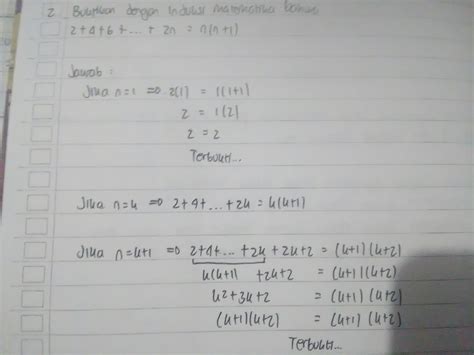 2. Buktikan dengan induksi matematika bahwa
2+4+6+...+ 2n = n(n+1)
Jawab :
Jika n=1 => 2(1) = 1(1+1)
2 = 1(2)
2 = 2
Terbukti...
Jika n=k => 2+4+...+2k = k(k+1)
Jika n=k+1 => 2+4+...+2k + 2k+2 = (k+1)(k+2)
k(k+1) + 2k+2 = (k+1)(k+2)
k²+3k+2 = (k+1)(k+2)
(k+1)(k+2) = (k+1)(k+2)
Terbukti...